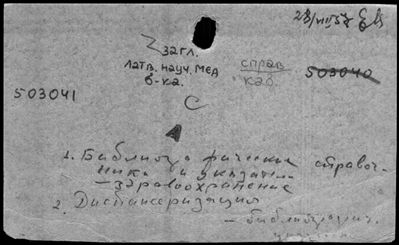 28/VII 57
загл.
латв. науч. мед
б-ка.
справ
каб.
503040
503041
С
А
1. Библиографические справоч-
ники и указатели
— здравоохранение
2. Диспансеризация
— библиографич.